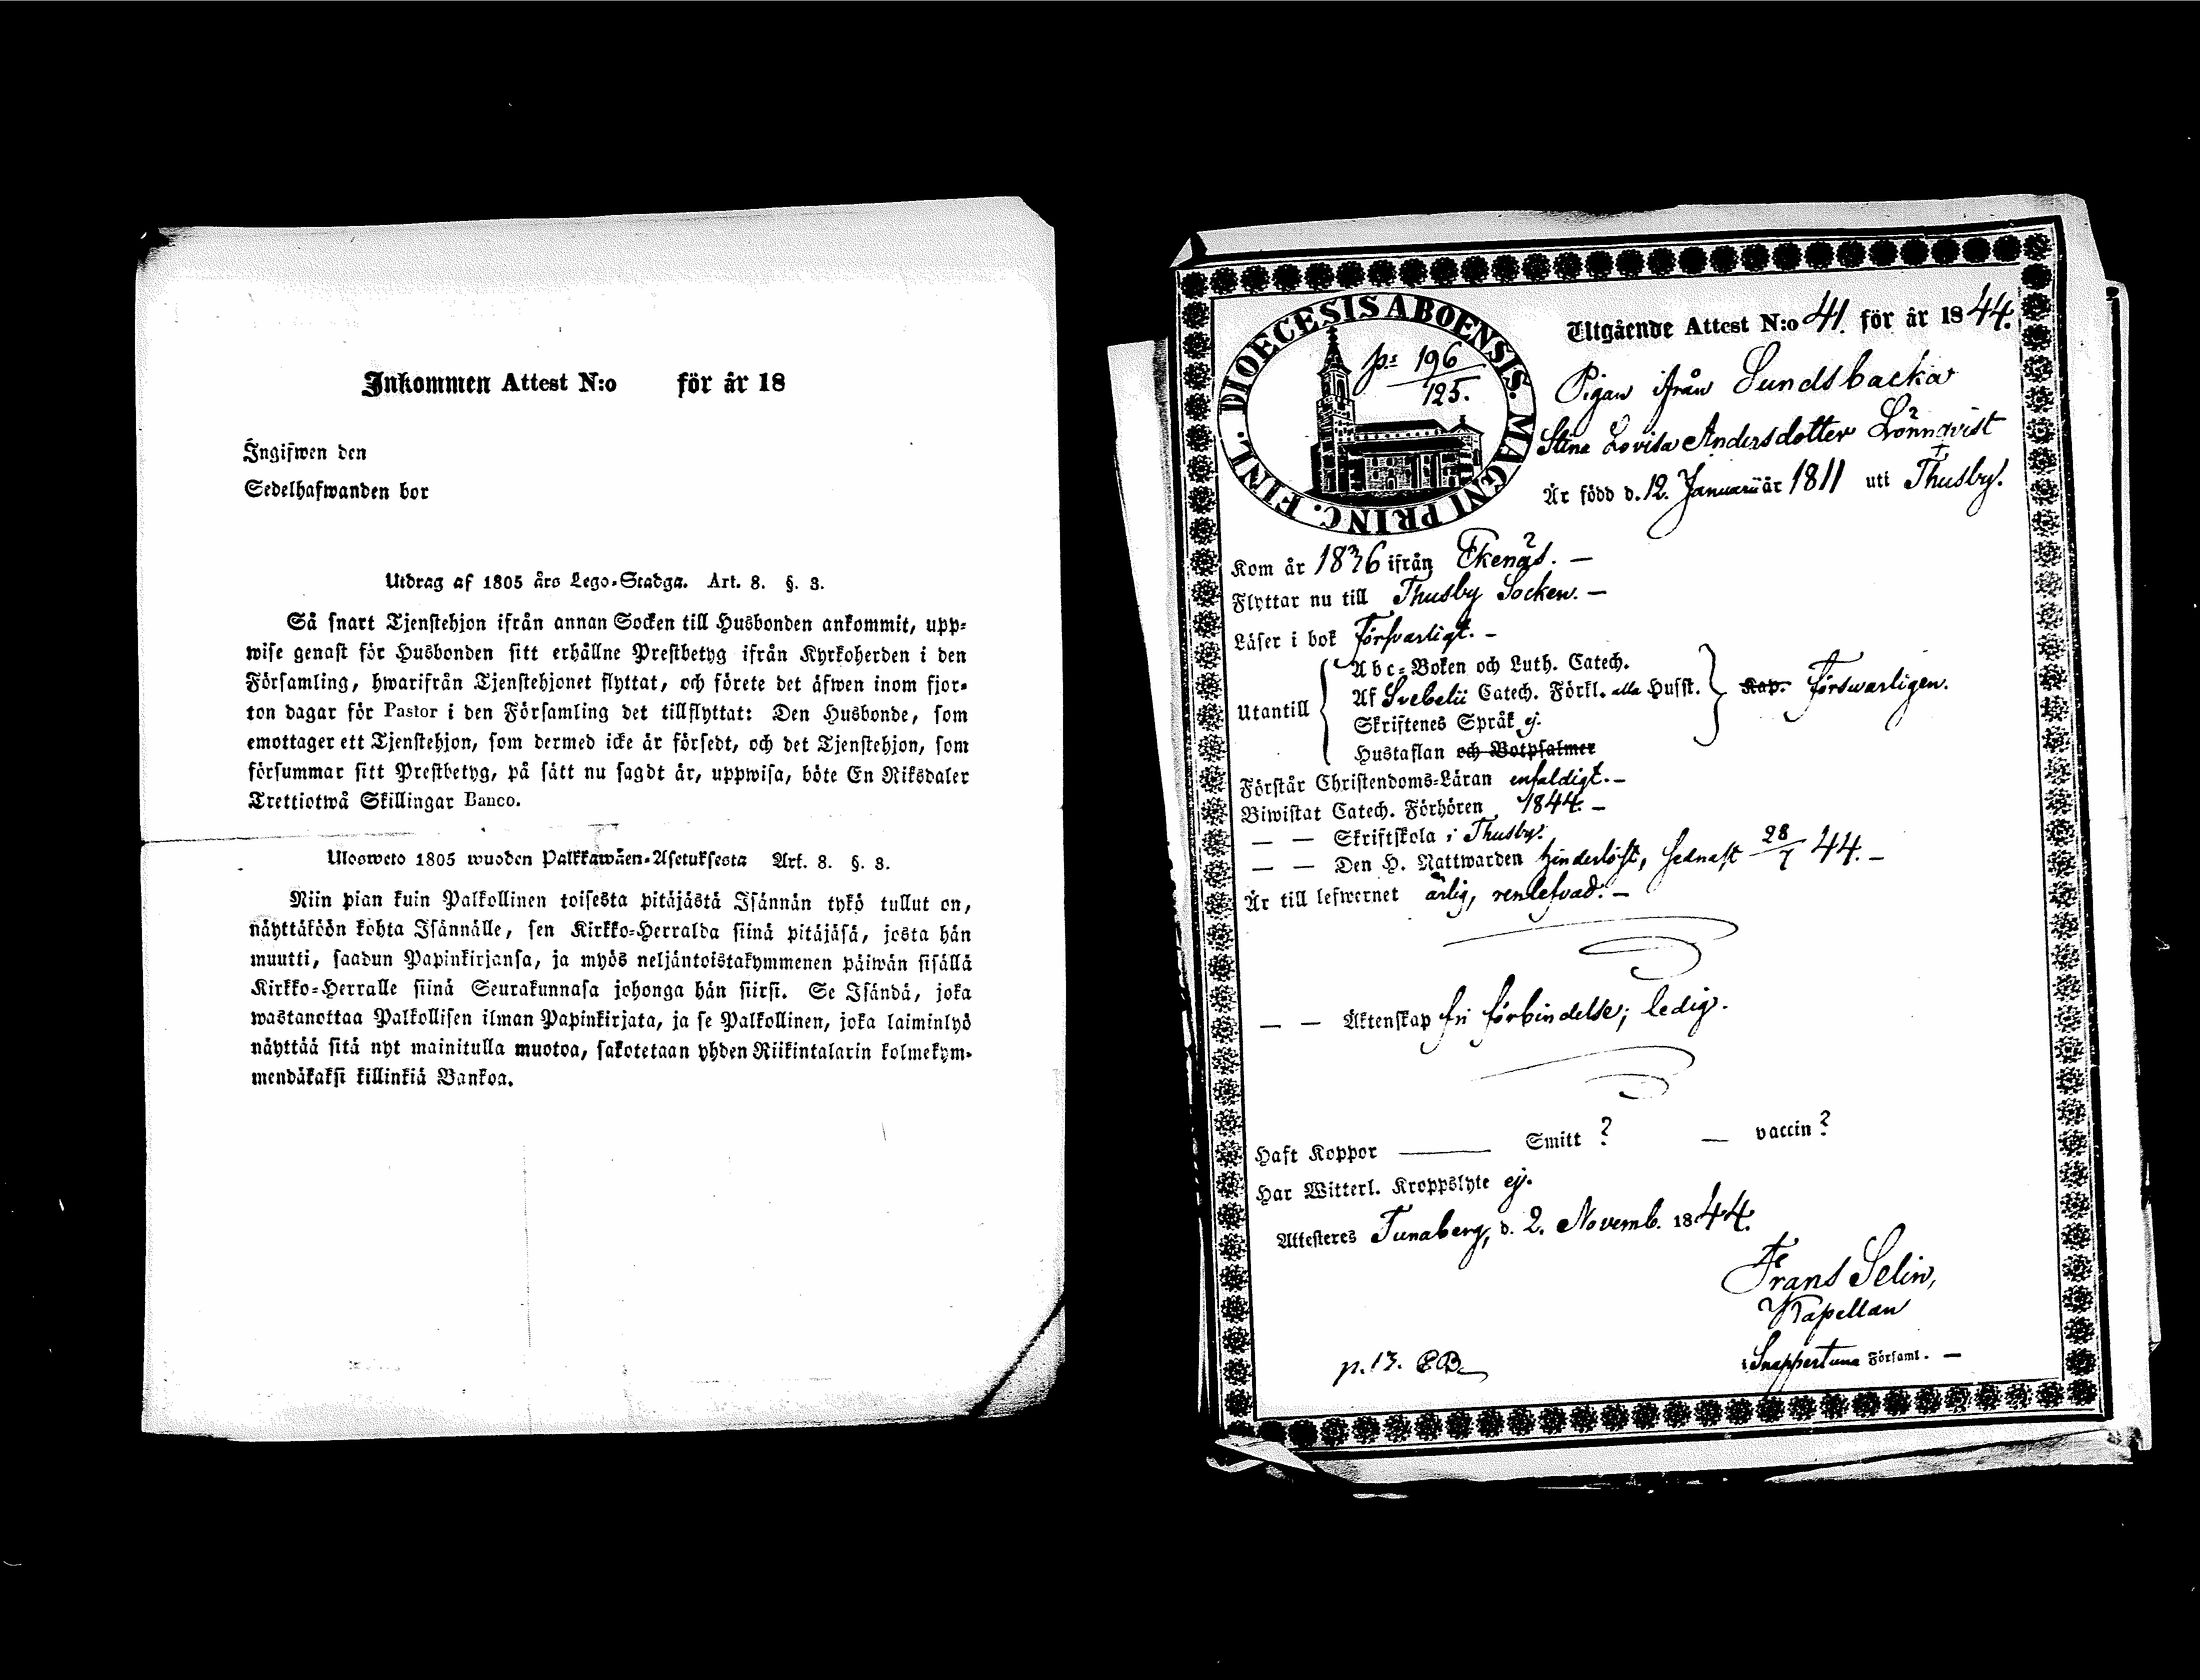 Inkommen Attest N:o för år 18
Ingifwen den
Sedelhafwanden bor
Utdrag af 1805 års Lego-Stadga. Art. 8. §. 3.
Så snart Tjenstehjon ifrån annan Socken till Husbonden ankommit, upp-
wise genast för Husbonden sitt erhållne Prestbetyg ifrån Kyrkoherden i den
Församling, hwarifrån Tjenstehjonet flyttat, och förete det äfwen inom fjor-
ton dagar för Pastor i den Församling det tillflyttat: Den Husbonde, som
emottager ett Tjenstehjon, som dermed icke är försedt, och det Tjenstehjon, som
försummar sitt Prestbetyg, på sätt nu sagdt är, uppwisa, böte En Riksdaler
Trettiotwå Skillingar Banco.
Ulosweto 1805 wuoden Palkkawäen-Asetuksesta Art. 8. §. 3.
Niin pian kuin Palkollinen toisesta pitäjästä Isännän tykö tullut on,
näyttäköön kohta Isännälle, sen Kirkko-Herralda siinä pitäjäsä, josta hän
muutti, saadun Papinkirjansa, ja myös neljäntoistakymmenen päiwän sisällä
Kirkko-Herralle siinä Seurakunnasa johonga hän siirsi. Se Isändä, joka
wastanottaa Palkollisen ilman Papinkirjata, ja se Palkollinen, joka laiminlyö
näyttää sitä nyt mainitulla muotoa, sakotetaan yhden Riikintalarin kolmekym-
mendäkaksi killinkiä Bankoa.
DIOECESIS ABOENSIS. MAGNI PRINC. FINL.
p: 196
125.
Utgående Attest N:o 41. för år 1844.
Pigan ifrån Sundsbacka
Stina Lovisa Andersdotter Lönnqvist
Är född d. 12. Januarii år 1811 uti Thusby.
Kom år 1836 ifrån Ekenäs. —
Flyttar nu till Thusby Socken. —
Läser i bok försvarligt. —
Utantill
Abc-Boken och Luth. Catech.
Af Svebelii Catech. Förkl. alla Husst.
Skriftenes Språk ej.
Hustaflan och Botpsalmer
Kap. Förswarligen.
Förstår Christendoms-Läran enfaldigt. —
Biwistat Catech. Förhören 1844. —
— — Skriftskola i Thusby.
— — Den H. Nattwarden hinderlöst, sednast 28/7 44. —
Är till lefwernet ärlig, renlefvad. —
— — Äktenskap fri förbindelse; ledig.
Haft Koppor — Smitt ? — vaccin ?
Har Witterl. Kroppslyte ej.
Attesteres Tunaberg, d. 2. Novemb. 1844.
Frans Selin,
Kapellan
i Snappertuna Församl. —
p. 13.